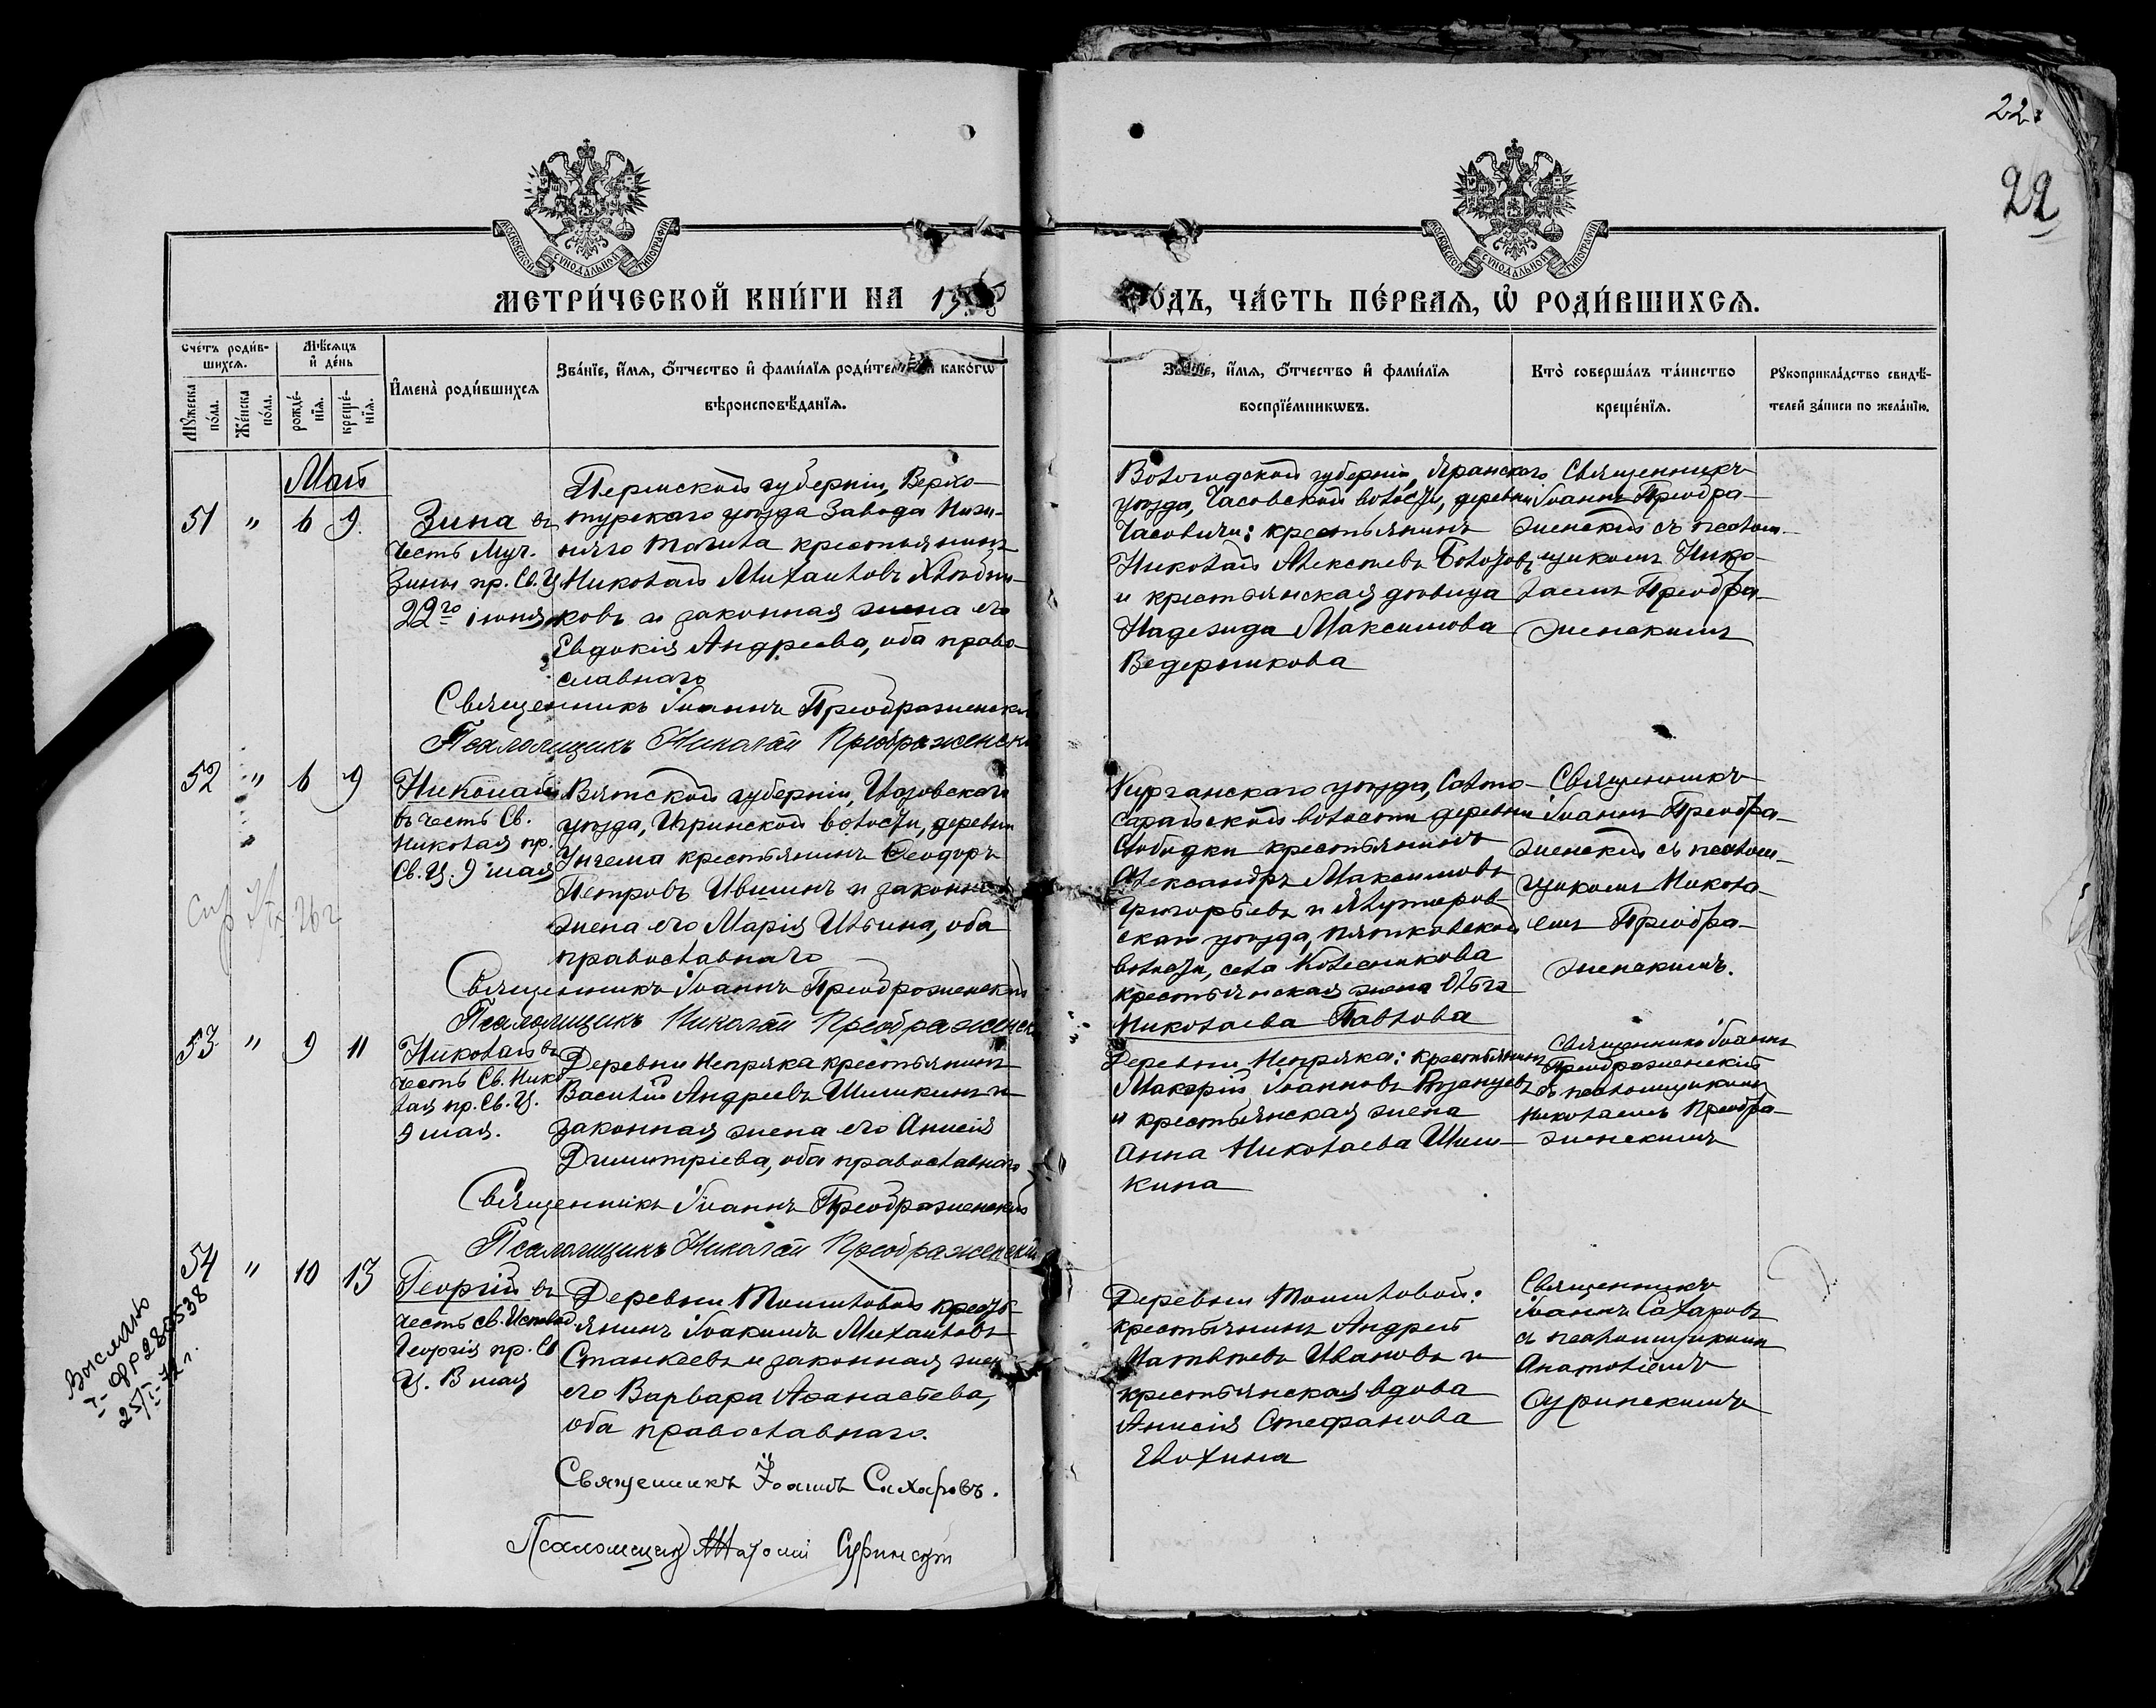 22.
22
МОСКОВСКОЙ СУНОДАЛЬНОЙ ТИПОГРАФІИ
МОСКОВСКОЙ СУНОДАЛЬНОЙ ТИПОГРАФІИ
МЕТРИ́ЧЕСКОЙ КНИ́ГИ НА
ЧА́СТЬ ПЕ́РВАѦ, Ѡ҆ РОДИ́ВШИХСѦ.
Сче́тъ роди́в-
шихсѧ.
Мѣ́сѧцъ
и҆ де́нь
Мꙋ́жеска
по́ла.
Же́нска
по́ла.
рожде́-
нїѧ.
креще́-
нїѧ.
И҆мена̀ роди́вшихсѧ
Зва́нїе, и҆́мѧ, ѻ҆́тчество и҆ фами́лїѧ како́гѡ
вѣроисповѣ́данїѧ.
и҆́мѧ, ѻ҆́тчество и҆ фами́лїѧ
воспрїе́мникѡвъ.
Кто̀ соверша́лъ та́инство
креще́нїѧ.
Рꙋкоприкла́дство свидѣ́-
телей за́писи по жела́нїю.
Май
51 " 6 9.
Зина въ
честь Муч.
Зины пр. Св. Ц
22го іюня
Пермской губерніи, Верхо-
турскаго уѣзда Завода Ниж-
няго Тагила крестьянинъ
Николай Михаиловъ Хлѣбни-
ковъ и законная жена его
Евдокія Андреева, оба право-
славнаго
Священникъ Іоаннъ Преображенскій
Псаломщикъ Николай Преображенскій
Вологодской губерніи, Яранскаго
уѣзда, Часовской волости, деревни
Часовичи: крестьянинъ
Николай Алексѣевъ
и крестьянская дѣвица
Надежда Максимова
Ведерникова
Священникъ
Іоаннъ Преобра-
женскій съ псалом-
щикомъ Нико-
лаемъ Преобра-
женскимъ
52 " 6 9
Николай
въ честь Св.
Николая пр.
Св. Ц. 9 мая
Вятской губерніи, Глазовскаго
уѣзда, Игринской волости, деревни
крестьянинъ Ѳеодоръ
Петровъ Ившинъ и законная
жена его Марія Ильина, оба
православнаго
Священникъ Іоаннъ Преображенскій
Псаломщикъ Николай Преображенскій
Курганскаго уѣзда, Салто-
сарайской волости деревни
Слободки крестьянинъ
Александръ Максимовъ
Григорьевъ и Ялуторов-
скаго уѣзда, Пятковской
волости, села Колесникова
крестьянская жена Ольга
Николаева Павлова
Священникъ
Іоаннъ Преобра-
женскій съ псалом-
щикомъ Никола-
емъ Преобра-
женскимъ.
53 " 9 11
Николай въ
честь Св. Нико-
лая пр. Св. Ц.
9 мая.
Деревни Непряка крестьянинъ
Василій Андреевъ Шишкинъ и
законная жена его Анисія
Димитріева, оба православнаго
Священникъ Іоаннъ Преображенскій
Псаломщикъ Николай Преображенскій
Деревни Непряка: крестьянинъ
Макарій Іоанновъ Рязанцевъ
и крестьянская жена
Анна Николаева Шиш-
кина
Священникъ Іоаннъ
Преображенскій
съ псаломщикомъ
Николаемъ Преобра-
женскимъ
54 " 10 13
Георгій въ
честь св. Исповѣд.
Георгія пр. Св
Ц. 13 мая
Деревни Томиловой кресть-
янинъ Іоакимъ Михаиловъ
Станкеевъ и законная жена
его Варвара Аѳанасьева,
оба православнаго.
Священникъ Іоаннъ Сахаровъ.
Псаломщикъ Анатолій Суринскій
Деревни Томиловой:
крестьянинъ Андрей
Матвѣевъ Ивановъ и
крестьянская вдова
Анисія Стефанова
Блохина
Священникъ
Іоаннъ Сахаровъ
съ псаломщикомъ
Анатоліемъ
Суринскимъ
Выслано
280538
25/I-72 г.